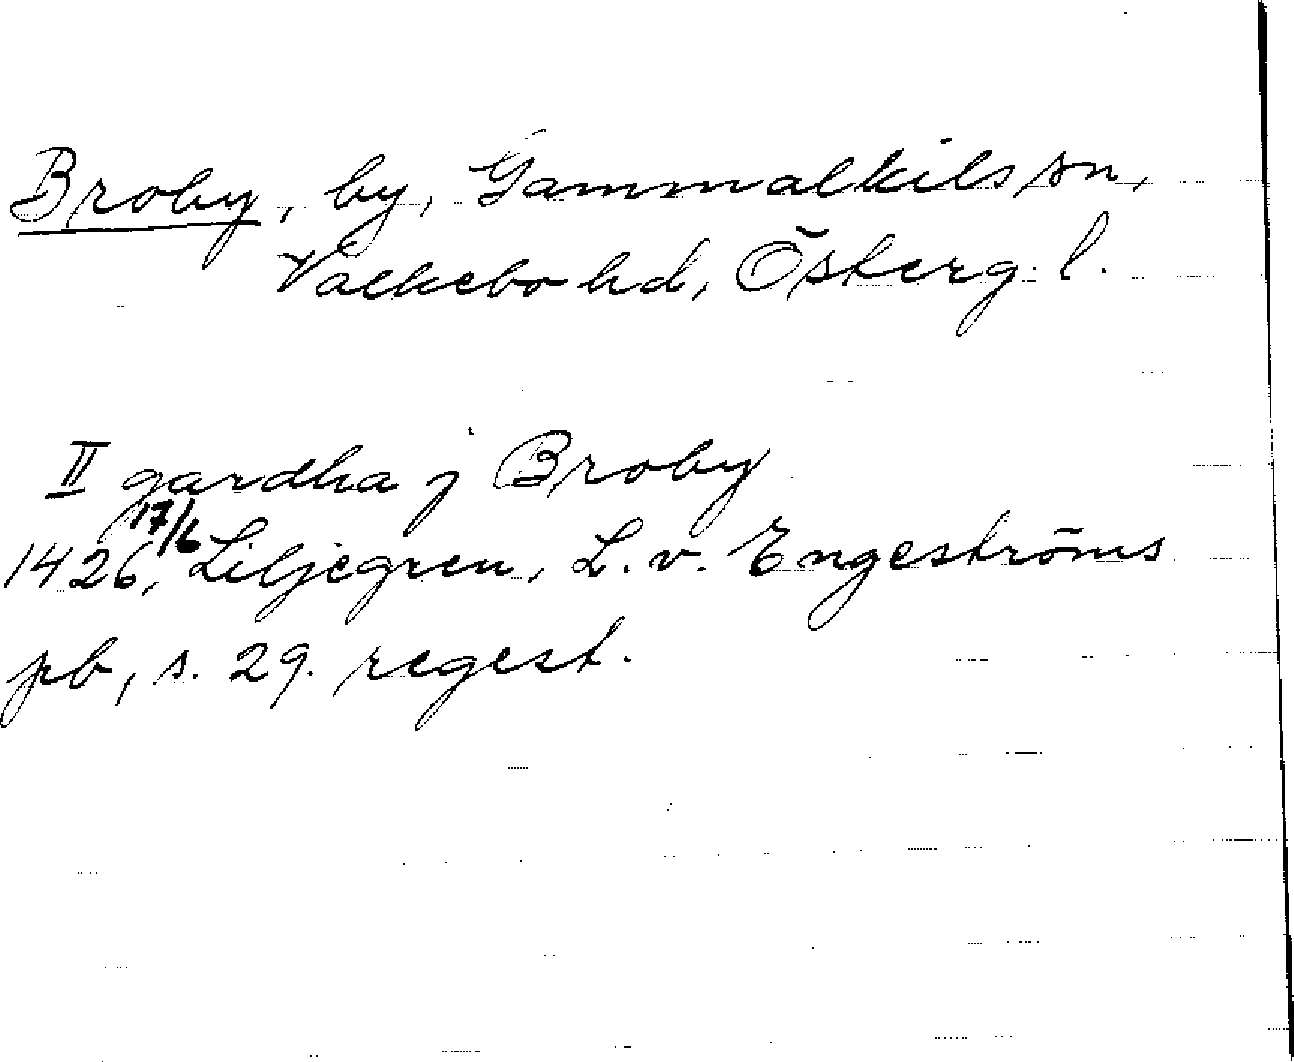 Broby, by, Gammalkils sn,
Valkebo hd, Österg. l.
II gardha j Broby
1426 17/6, Liljegren, L. v. Engeströms
pb, s. 29. regest.